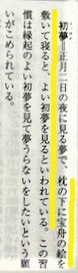 初夢＝正月二日の夜に見る夢で、枕の下に宝舟の絵を
敷いて寝ると、よい初夢を見るといわれている。この習
慣は縁起のよい初夢を見て夢うらないをしたいという願
いがこめられている。